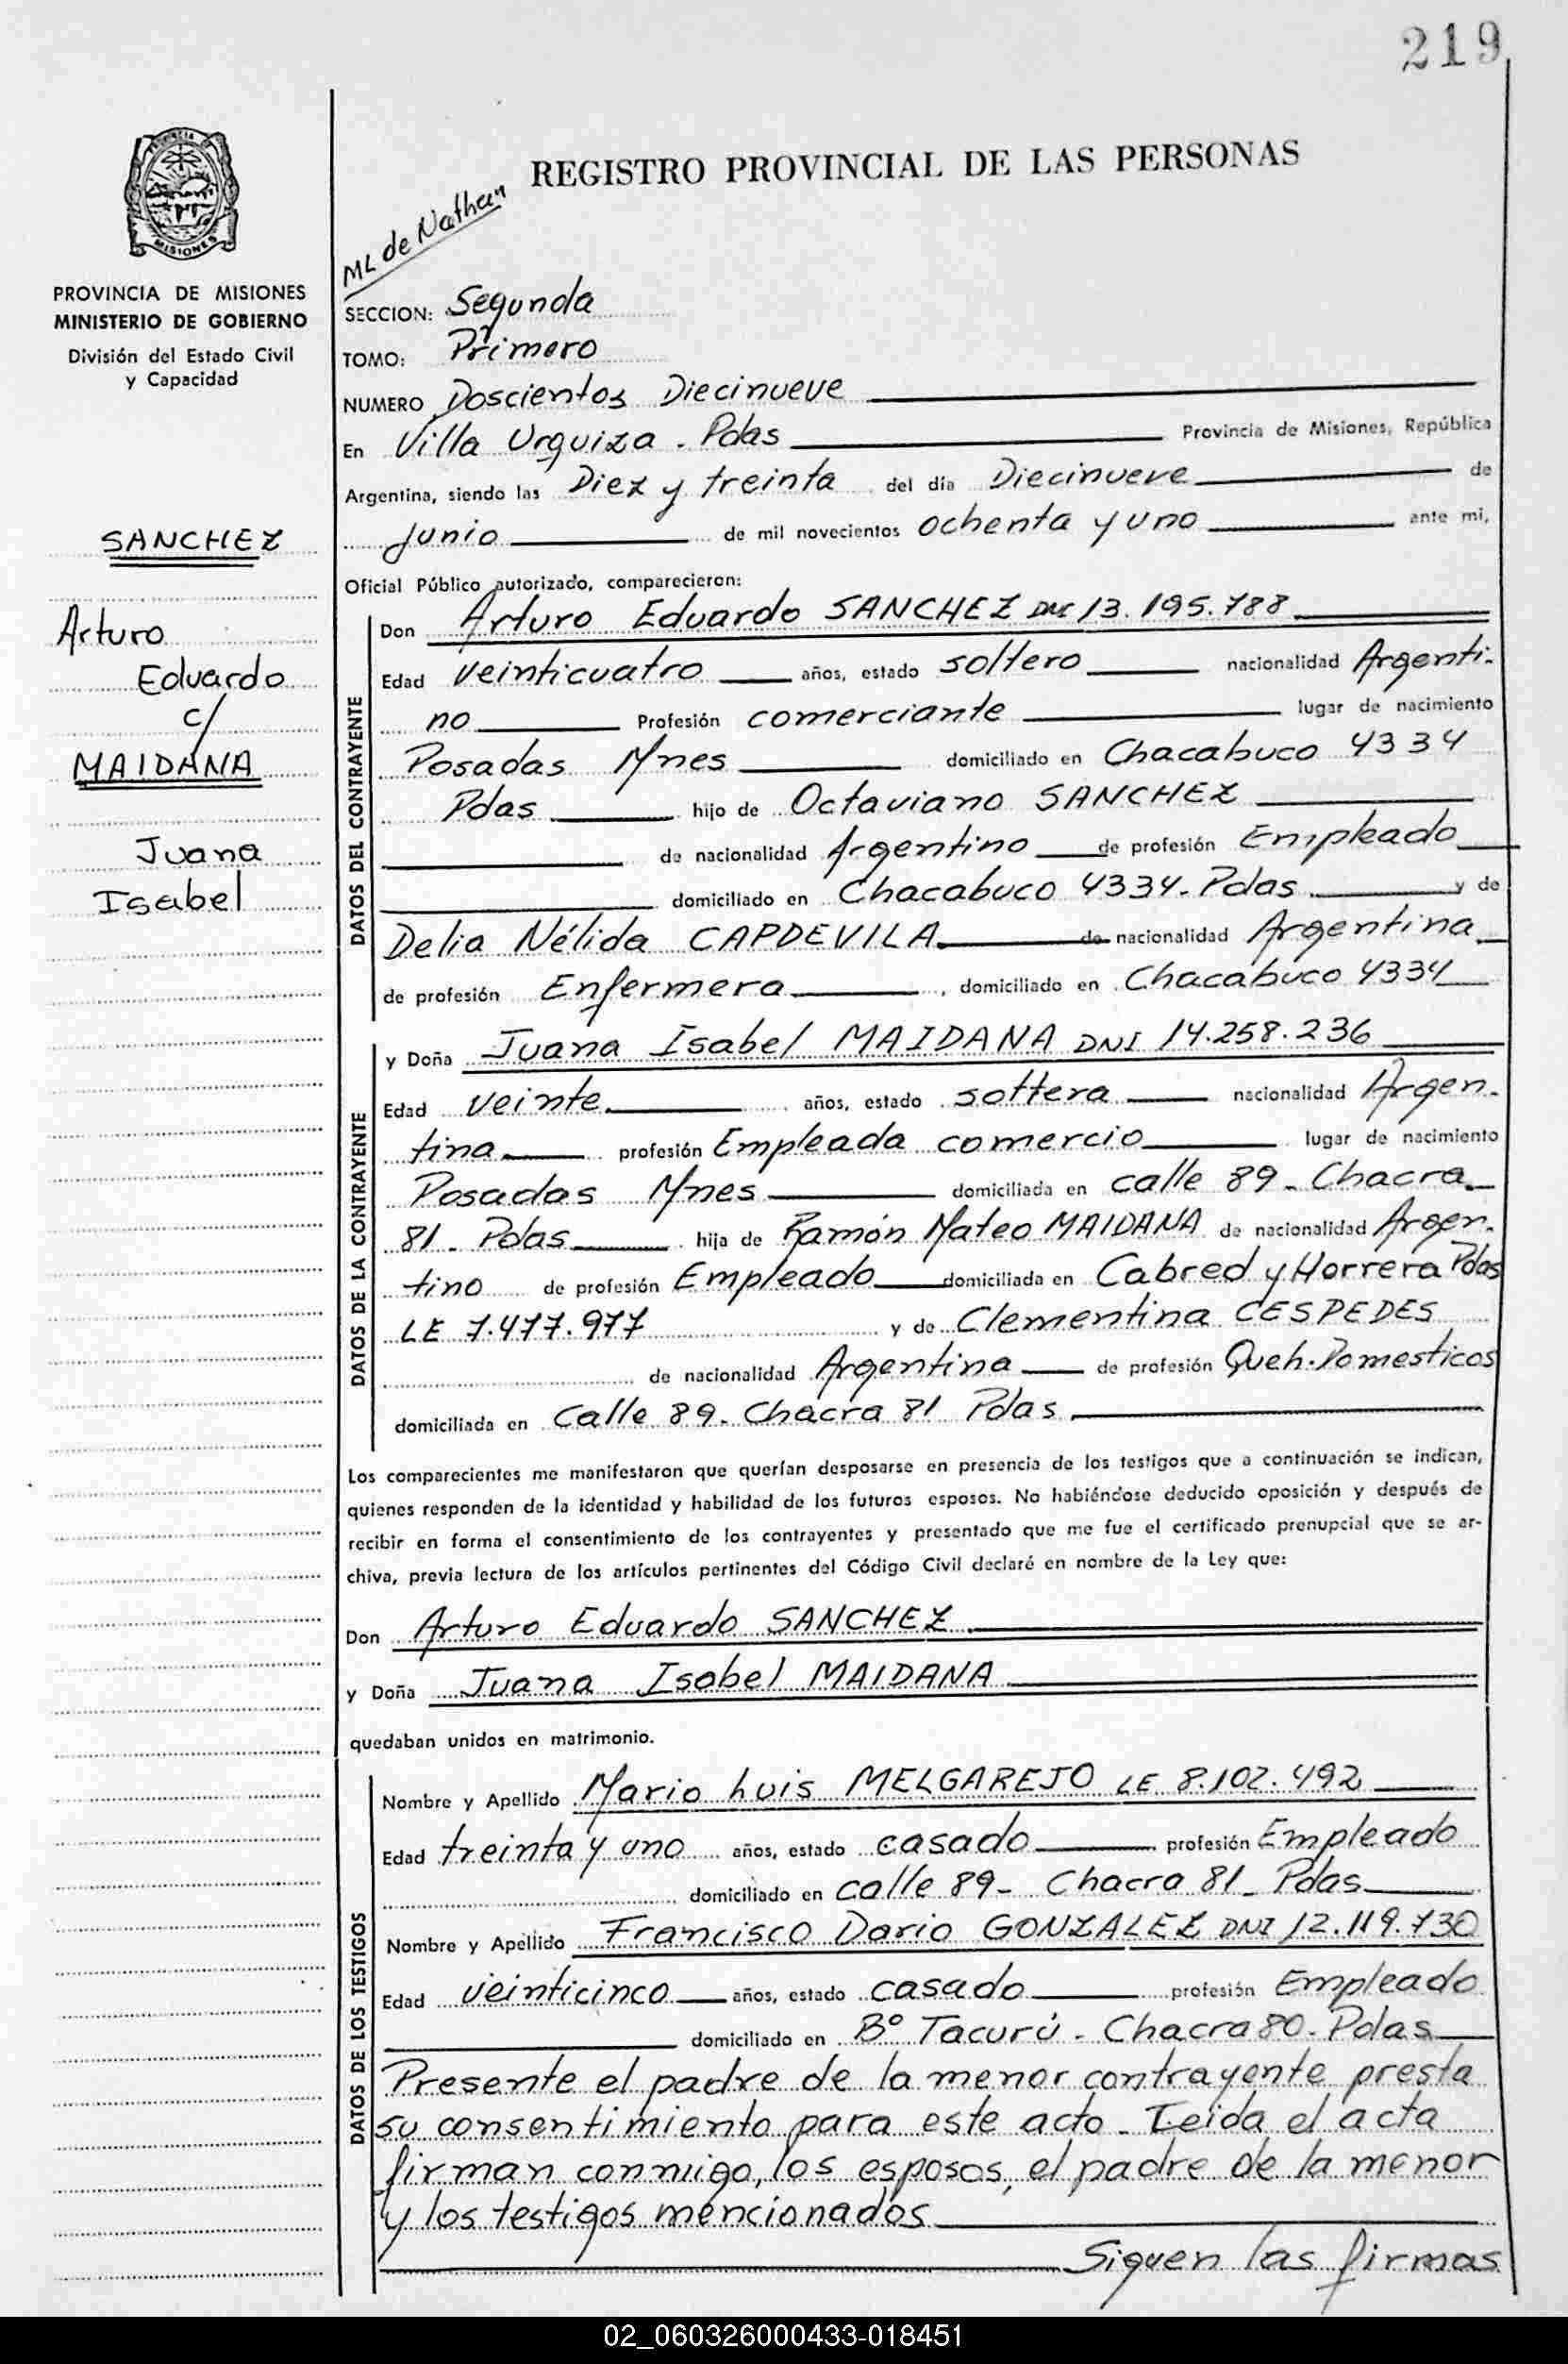 219
PROVINCIA
MISIONES
PROVINCIA DE MISIONES
MINISTERIO DE GOBIERNO
División del Estado Civil
y Capacidad
SANCHEZ
Arturo
Eduardo
c/
MAIDANA
Juana
Isabel
REGISTRO PROVINCIAL DE LAS PERSONAS
ML de Nathan
SECCION: Segunda
TOMO: Primero
NUMERO Doscientos Diecinueve
En Villa Urquiza. Pdas Provincia de Misiones, República
Argentina, siendo las Diez y treinta del día Diecinueve de
Junio de mil novecientos ochenta y uno ante mi,
Oficial Público autorizado, comparecieron:
DATOS DEL CONTRAYENTE
Don Arturo Eduardo SANCHEZ DNI 13.195.788
Edad veinticuatro años, estado soltero nacionalidad Argenti-
no Profesión comerciante lugar de nacimiento
Posadas Mnes domiciliado en Chacabuco 4334
Pdas hijo de Octaviano SANCHEZ
de nacionalidad Argentino de profesión Empleado
domiciliado en Chacabuco 4334. Pdas y de
Delia Nélida CAPDEVILA de nacionalidad Argentina
de profesión Enfermera, domiciliado en Chacabuco 4334
DATOS DE LA CONTRAYENTE
y Doña Juana Isabel MAIDANA DNI 14.258.236
Edad veinte años, estado soltera nacionalidad Argen-
tina profesión Empleada comercio lugar de nacimiento
Posadas Mnes domiciliada en calle 89- Chacra
81- Pdas hija de Ramón Mateo MAIDANA de nacionalidad Argen-
tino de profesión Empleado domiciliada en Cabred y Horrera Pdas
LE 7.477.977 y de Clementina CESPEDES
de nacionalidad Argentina de profesión Queh. Domesticos
domiciliada en Calle 89- Chacra 81 Pdas
Los comparecientes me manifestaron que querían desposarse en presencia de los testigos que a continuación se indican,
quienes responden de la identidad y habilidad de los futuros esposos. No habiéndose deducido oposición y después de
recibir en forma el consentimiento de los contrayentes y presentado que me fue el certificado prenupcial que se ar-
chiva, previa lectura de los artículos pertinentes del Código Civil declaré en nombre de la Ley que:
Don Arturo Eduardo SANCHEZ
y Doña Juana Isabel MAIDANA
quedaban unidos en matrimonio.
DATOS DE LOS TESTIGOS
Nombre y Apellido Mario Luis MELGAREJO LE 8.102.492
Edad treinta y uno años, estado casado profesión Empleado
domiciliado en calle 89- Chacra 81- Pdas
Nombre y Apellido Francisco Dario GONZALEZ DNI 12.119.730
Edad veinticinco años, estado casado profesión Empleado
domiciliado en B° Tacurú - Chacra 80- Pdas
Presente el padre de la menor contrayente presta
su consentimiento para este acto - Leida el acta
firman conmigo, los esposos, el padre de la menor
y los testigos mencionados
Siguen las firmas
02_060326000433-018451